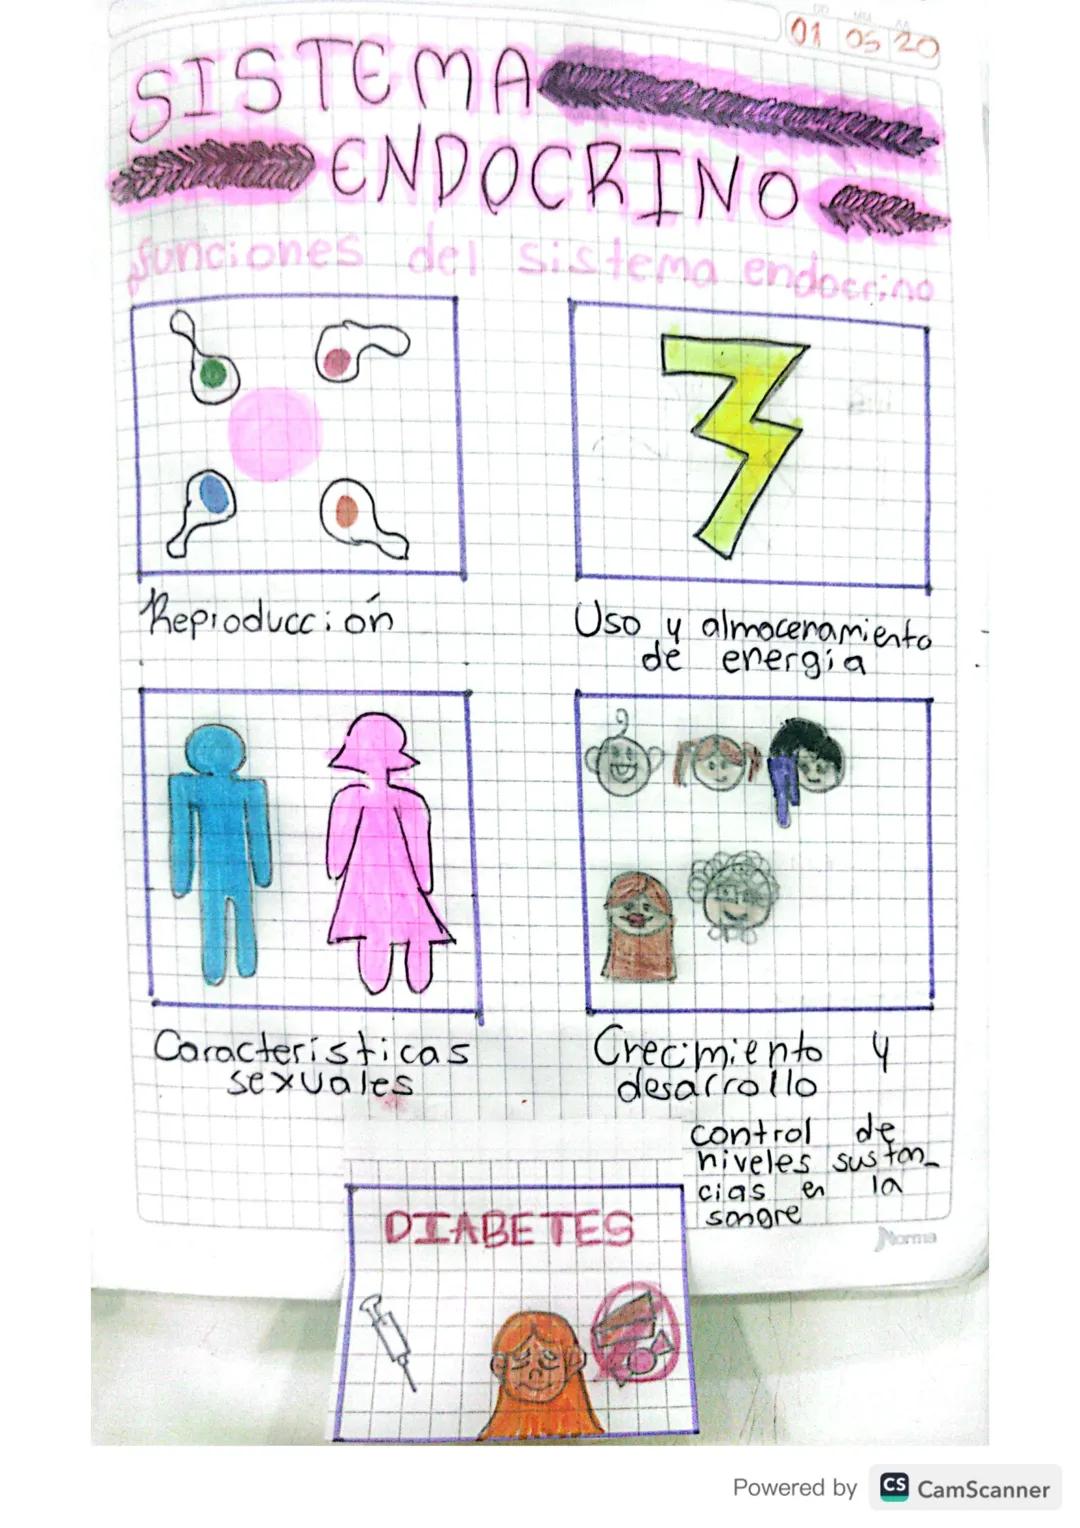 DD MM AA
01 05 20
SISTEMA
ENDOCRINO
funciones del sistema endocrino
Reproducción
Uso y almacenamiento
de energía
Características
sexuales
Crecimiento y
desarrollo
control de
niveles sustan-
cias en la
sangre
Norma
DIABETES
Powered by CS CamScanner